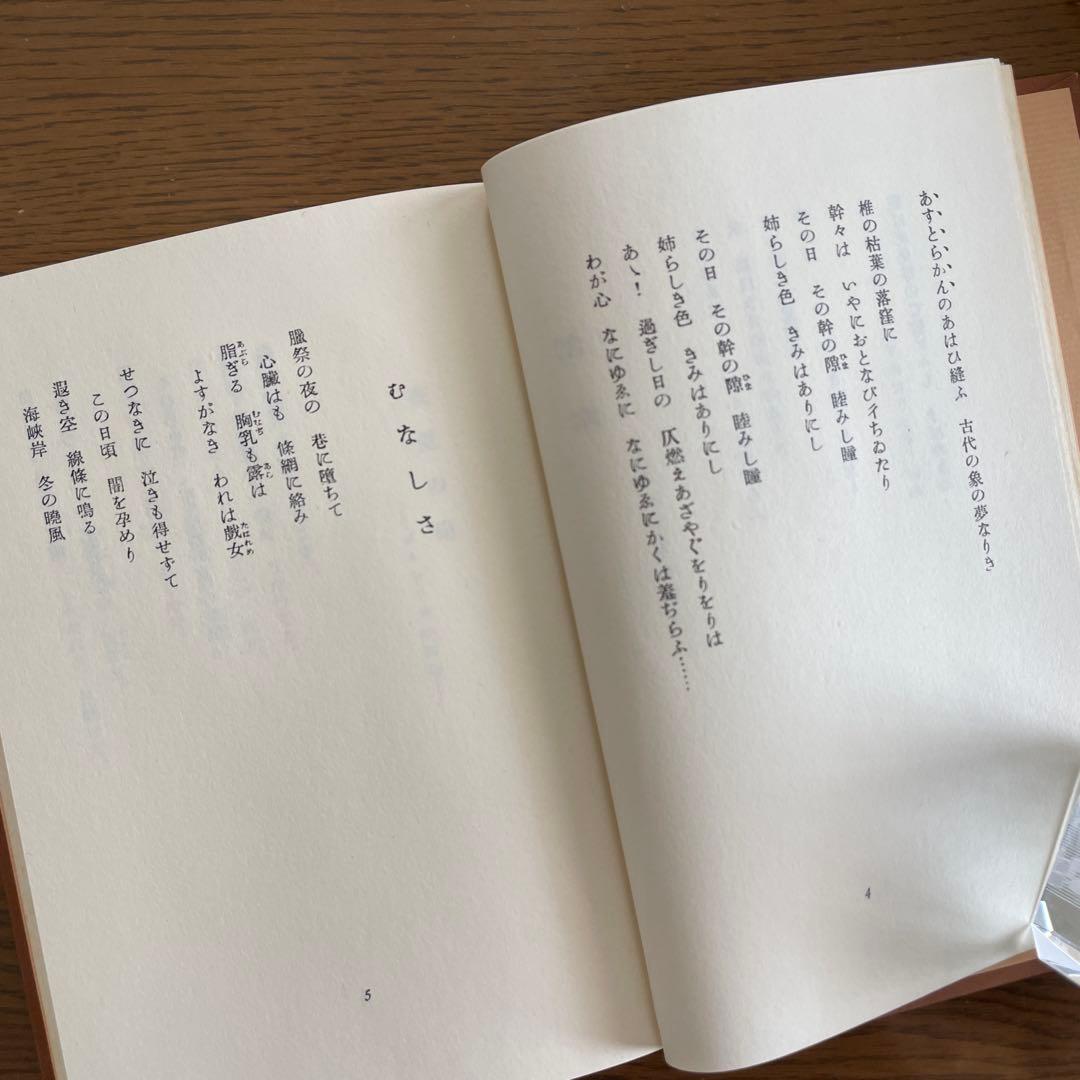 あすとらかんのあはひ縫ふ　古代の象の夢なりき
椎の枯葉の落窪に
幹々は　いやにおとなび彳ちゐたり
その日　その幹の隙　睦みし瞳
姉らしき色　きみはありにし
その日　その幹の隙　睦みし瞳
姉らしき色　きみはありにし
あゝ！　過ぎし日の　仄燃えあざやぐをりをりは
わが心　なにゆゑに　なにゆゑにかくは羞ぢらふ……
4
むなしさ
臘祭の夜の　巷に堕ちて
心臓はも　條網に絡み
脂ぎる　胸乳も露は
よすがなき　われは戯女
せつなきに　泣きも得せずて
この日頃　闇を孕めり
遐き空　線條に鳴る
海峡岸　冬の曉風
5